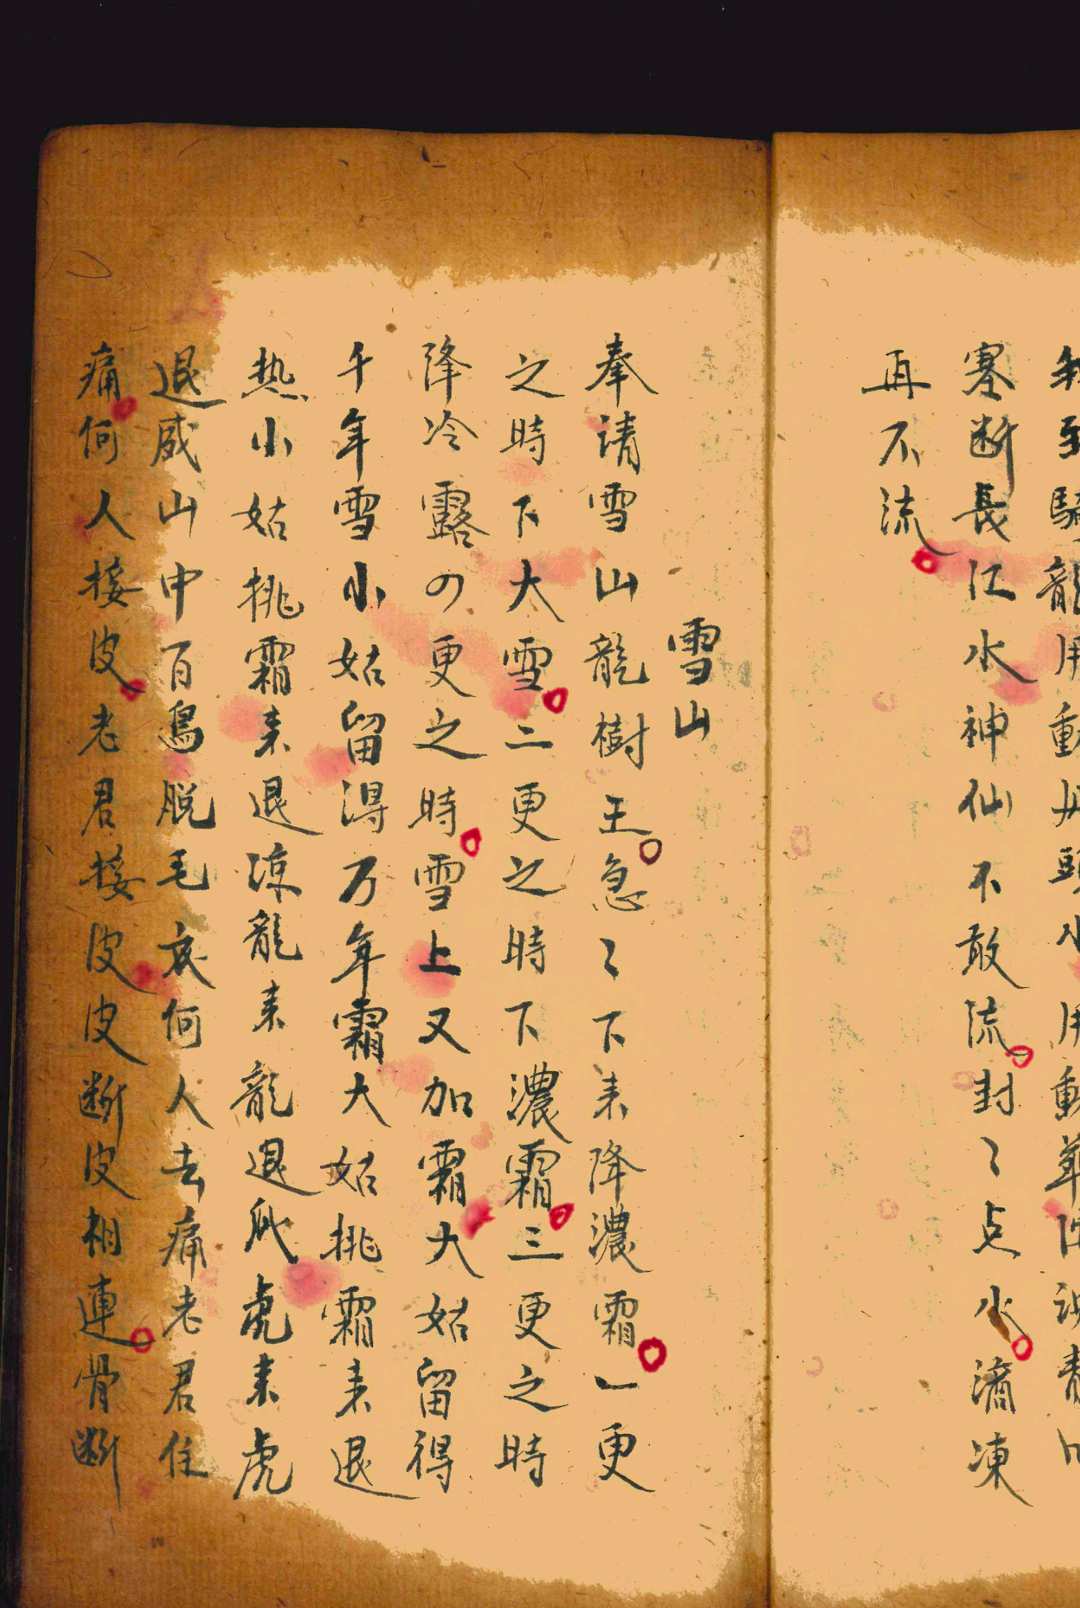 到騎龍用動 頭水用動
塞断長江水神仙不敢流封〻点水滴凍
再不流
雪山
奉請雪山龍樹王急〻下来降濃霜一更
之時下大雪二更之時下濃霜三更之時
降冷露の更之時雪上又加霜大姑留得
千年雪小姑留淂万年霜大姑挑霜来退
热小姑挑霜来退凉龍来龍退爪虎来虎
退威山中百鳥脱毛衣何人去痛老君住
痛何人接皮老君接皮皮断皮相連骨断